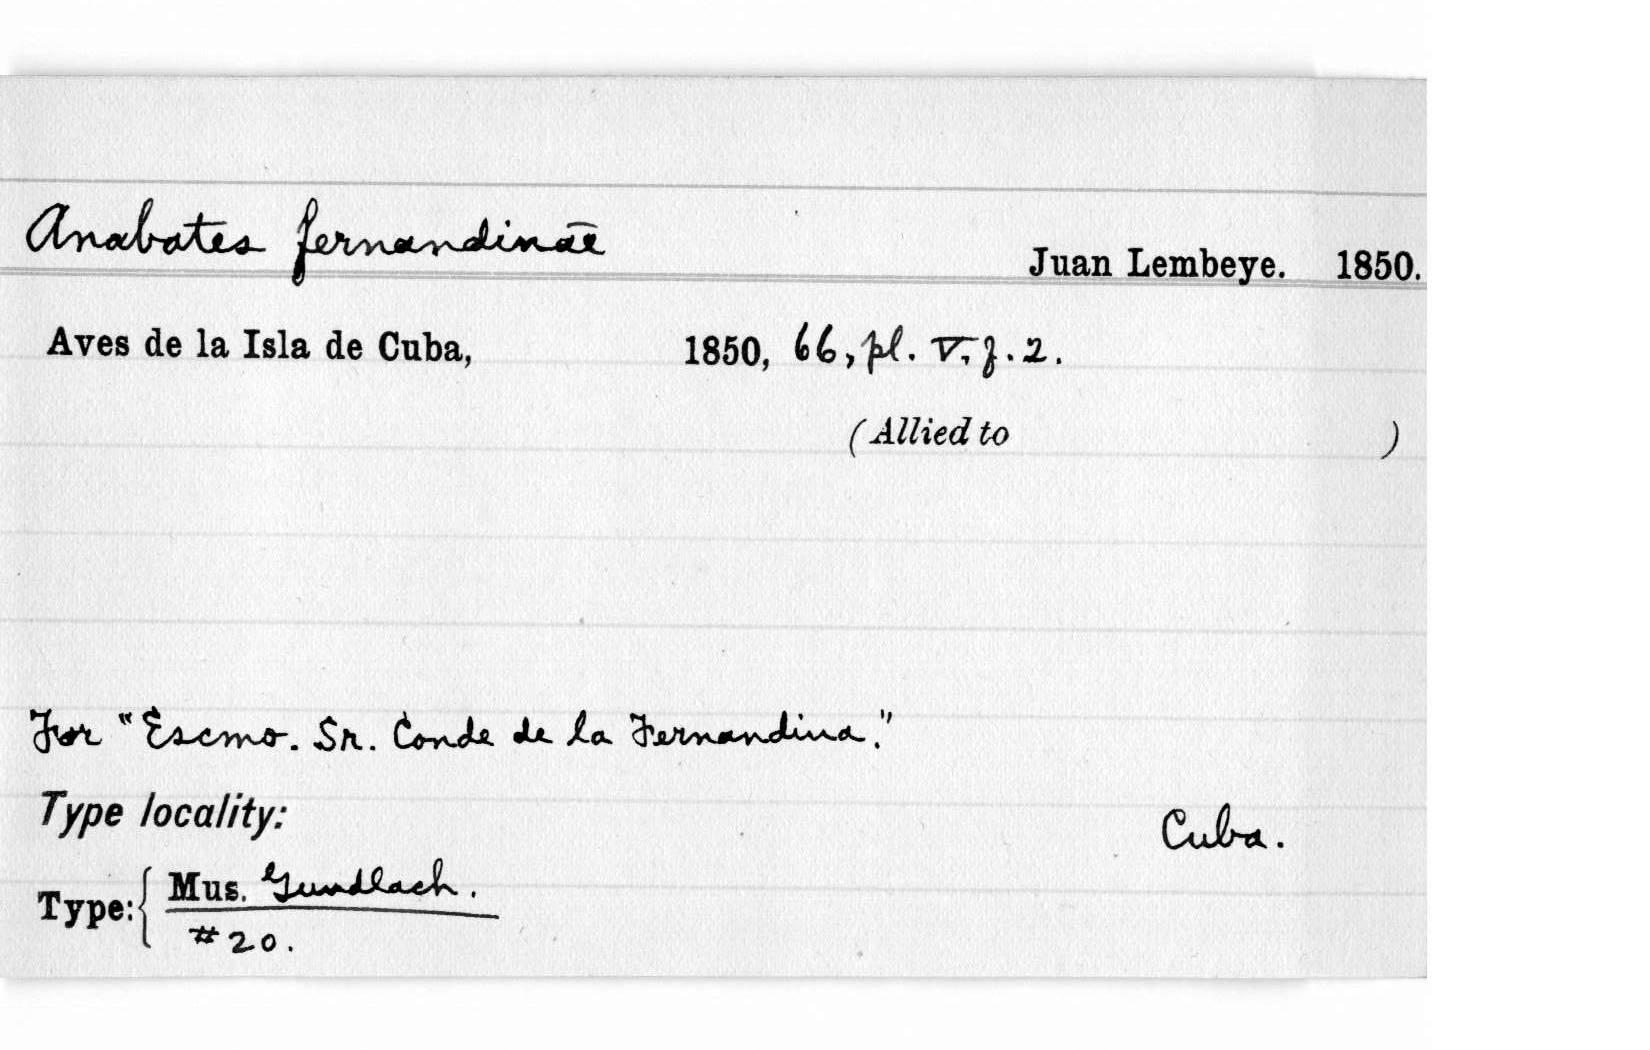 Anabates fernandinae Juan Lembeye. 1850.
Aves de la Isla de Cuba, 1850, 66, pl. V, f. 2.
(Allied to )
For "Escmo. Sr. Conde de la Fernandina."
Type locality: Cuba.
Type: { Mus. Gundlach.
#20.